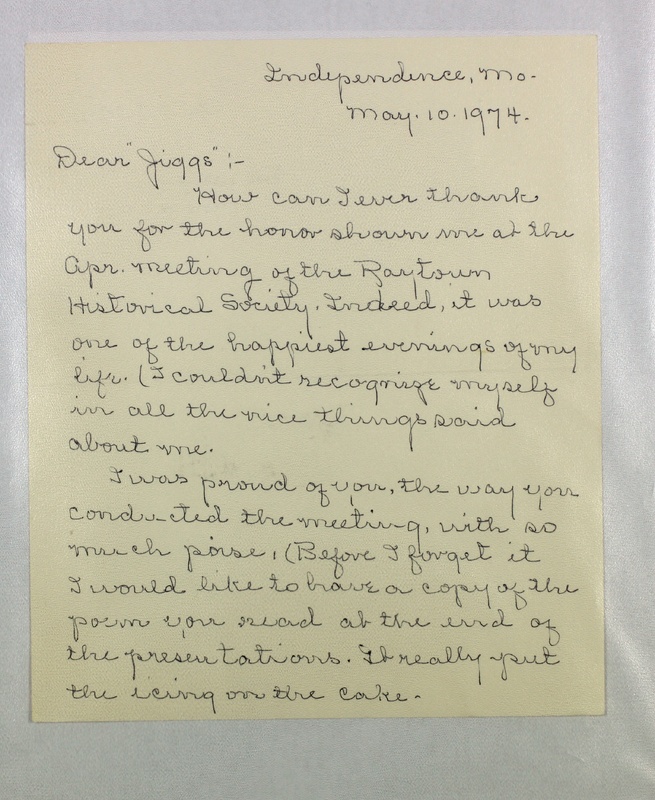 Independence, Mo.
May. 10. 1974.
Dear "Jiggs" :-
How can I ever thank
you for the honor shown me at the
Apr. meeting of the Raytown
Historical Society. Indeed, it was
one of the happiest evenings of my
life. (I couldn't recognize myself
in all the nice things said
about me.
I was proud of you, the way you
conducted the meeting, with so
much poise. (Before I forget it
I would like to have a copy of the
poem you read at the end of
the presentations. It really put
the icing on the cake.